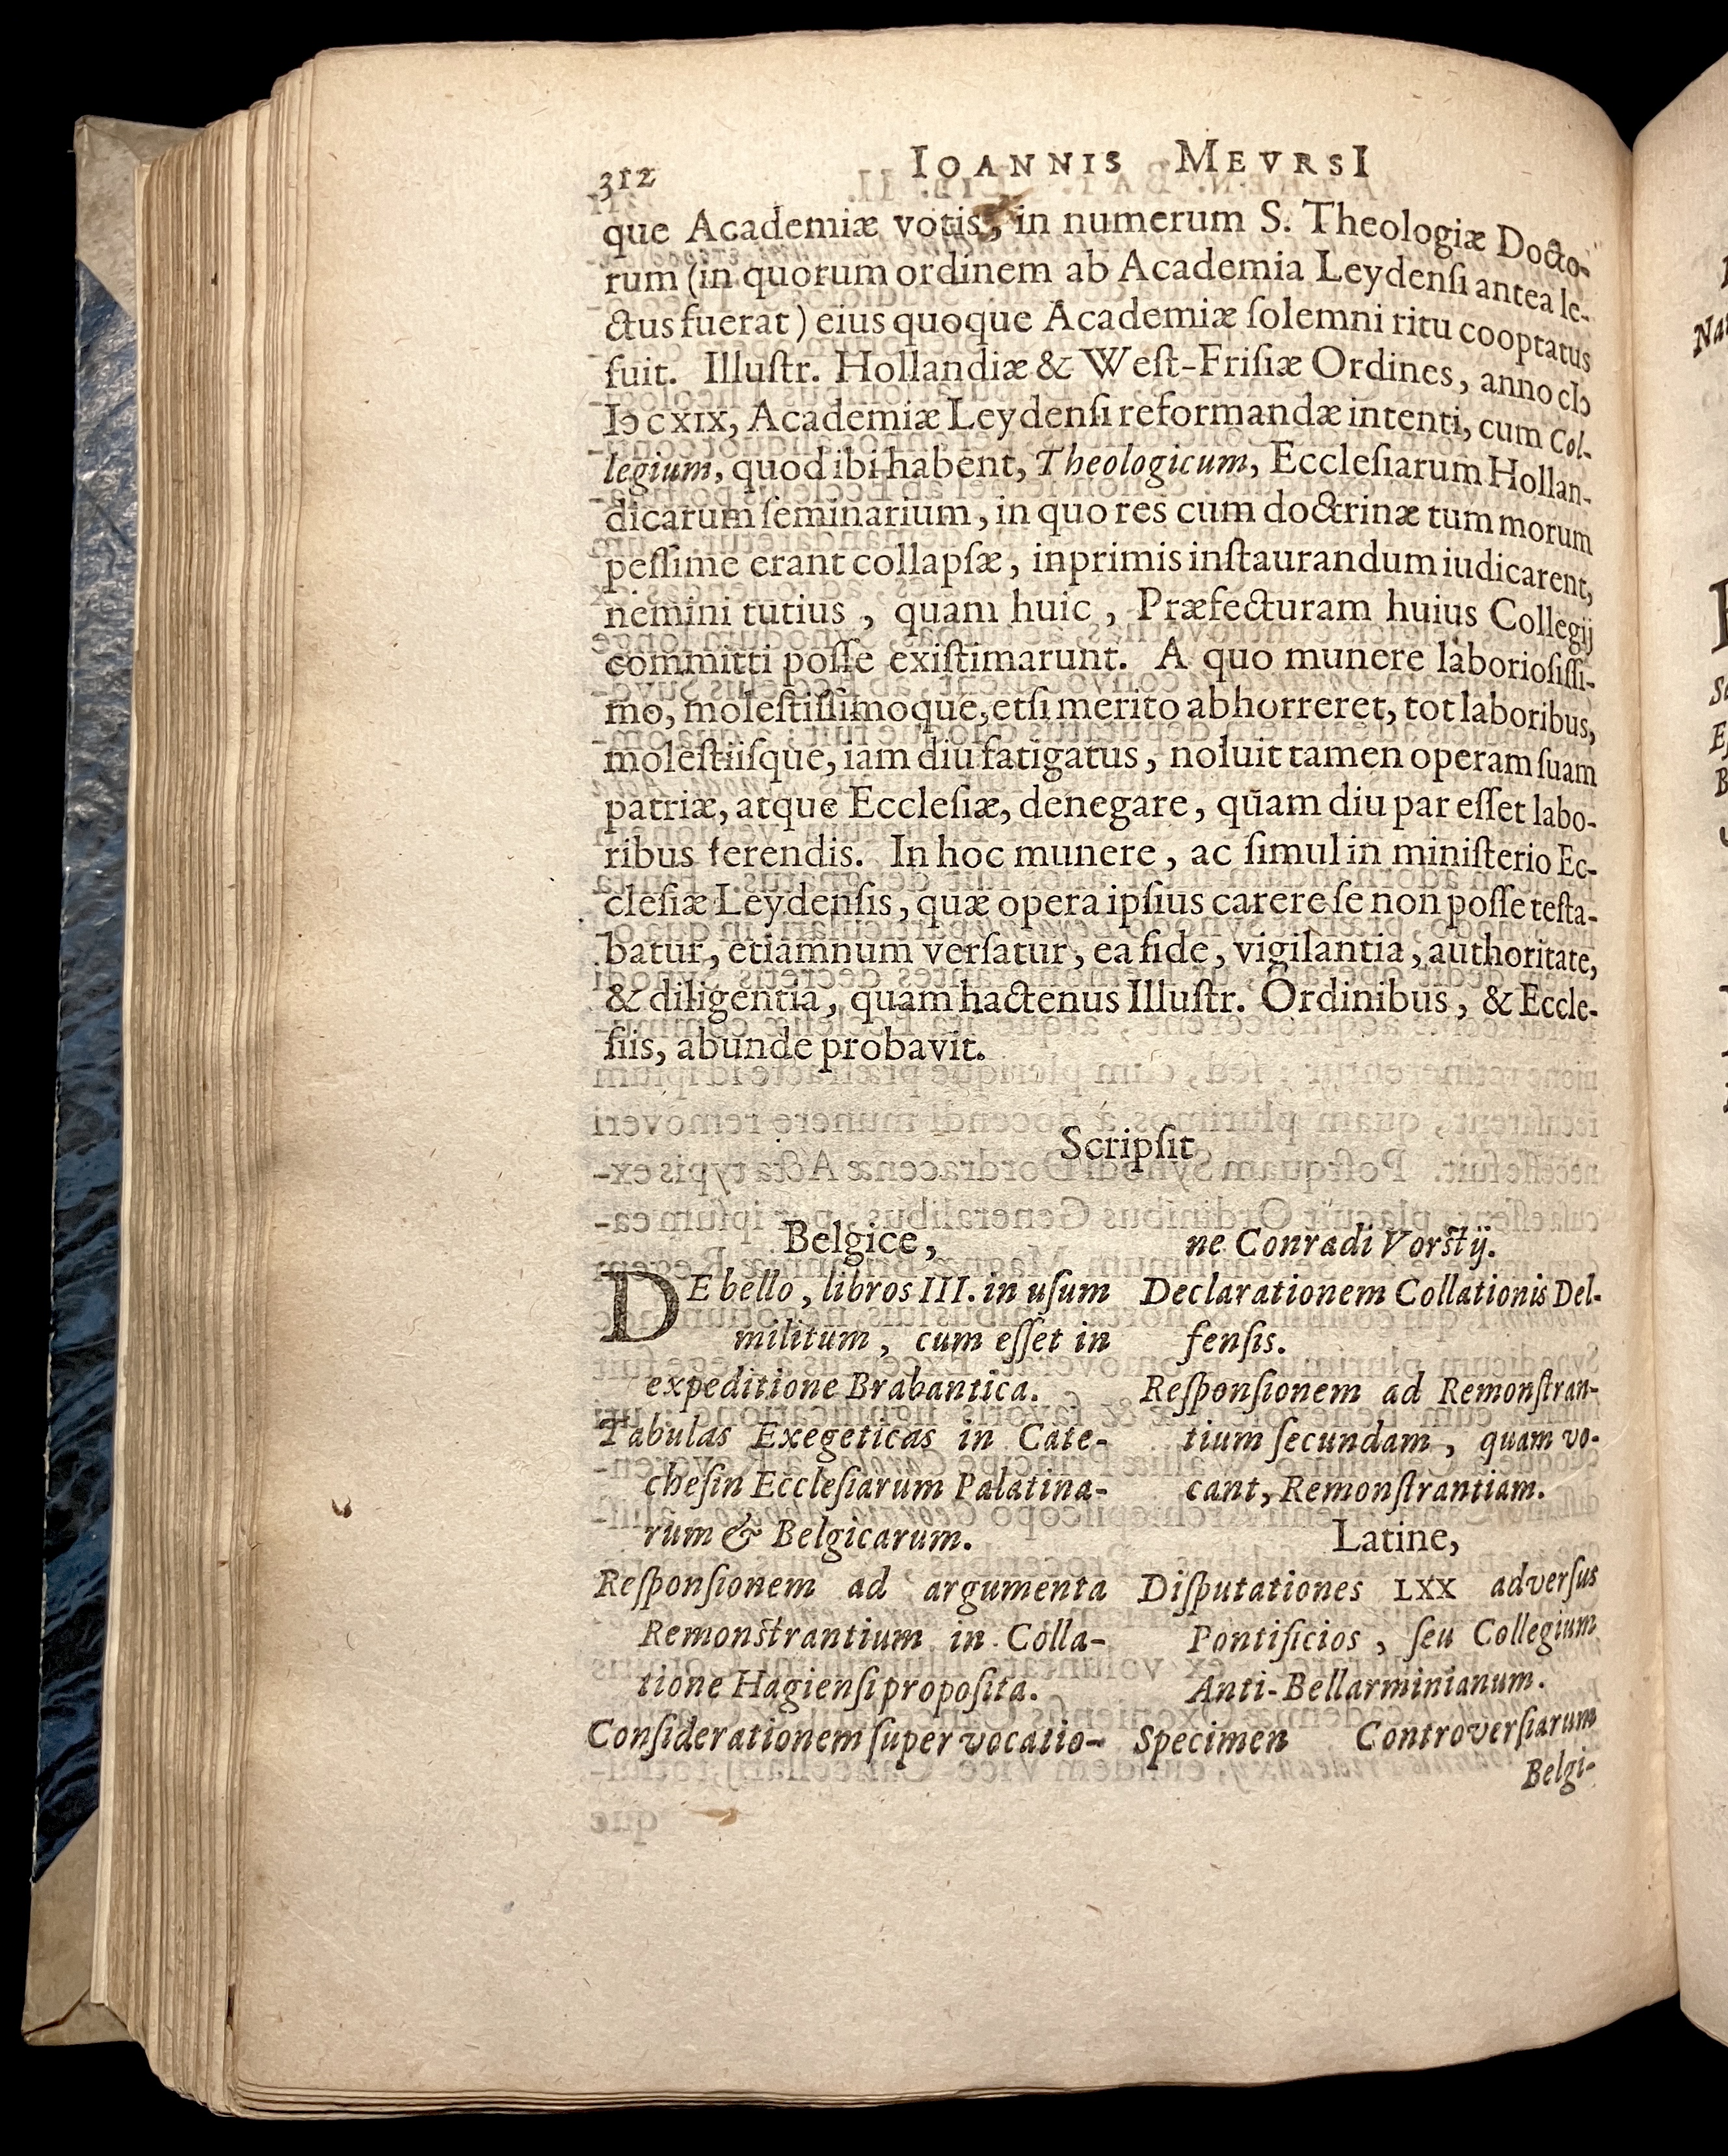 312 IOANNIS MEVRSI
que Academiæ votis, in numerum S. Theologiæ Docto-
rum (in quorum ordinem ab Academia Leydenſi antea le-
ctus fuerat) eius quoque Academiæ ſolemni ritu cooptatus
fuit. Illuſtr. Hollandiæ & Weſt-Friſiæ Ordines, anno cIɔ
Iɔ c XIX, Academiæ Leydenſi reformandæ intenti, cum Col-
legium, quod ibi habent, Theologicum, Eccleſiarum Hollan-
dicarum ſeminarium, in quo res cum doctrinæ tum morum
peſſime erant collapſæ, inprimis inſtaurandum iudicarent,
nemini tutius, quam huic, Præfecturam huius Collegij
committi poſſe exiſtimarunt. A quo munere laborioſiſſi-
mo, moleſtiſſimoque, etſi merito abhorreret, tot laboribus,
moleſtiiſque, iam diu fatigatus, noluit tamen operam ſuam
patriæ, atque Eccleſiæ, denegare, quam diu par eſſet labo-
ribus ferendis. In hoc munere, ac ſimul in miniſterio Ec-
cleſiæ Leydenſis, quæ opera ipſius carere ſe non poſſe teſta-
batur, etiamnum verſatur, ea fide, vigilantia, authoritate,
& diligentia, quam hactenus Illuſtr. Ordinibus, & Eccle-
ſiis, abunde probavit.
Scripſit
Belgice,
DE bello, libros III. in uſum
militum, cum eſſet in
expeditione Brabantica.
Tabulas Exegeticas in Cate-
cheſin Eccleſiarum Palatina-
rum & Belgicarum.
Reſponſionem ad argumenta
Remonſtrantium in Colla-
tione Hagienſi propoſita.
Conſiderationem ſuper vocatio-
ne Conradi Vorſtij.
Declarationem Collationis Del-
fenſis.
Reſponſionem ad Remonſtran-
tium ſecundam, quam vo-
cant, Remonſtrantiam.
Latine,
Diſputationes LXX adverſus
Pontificios, ſeu Collegium
Anti-Bellarminianum.
Specimen Controverſiarum
Belgi-